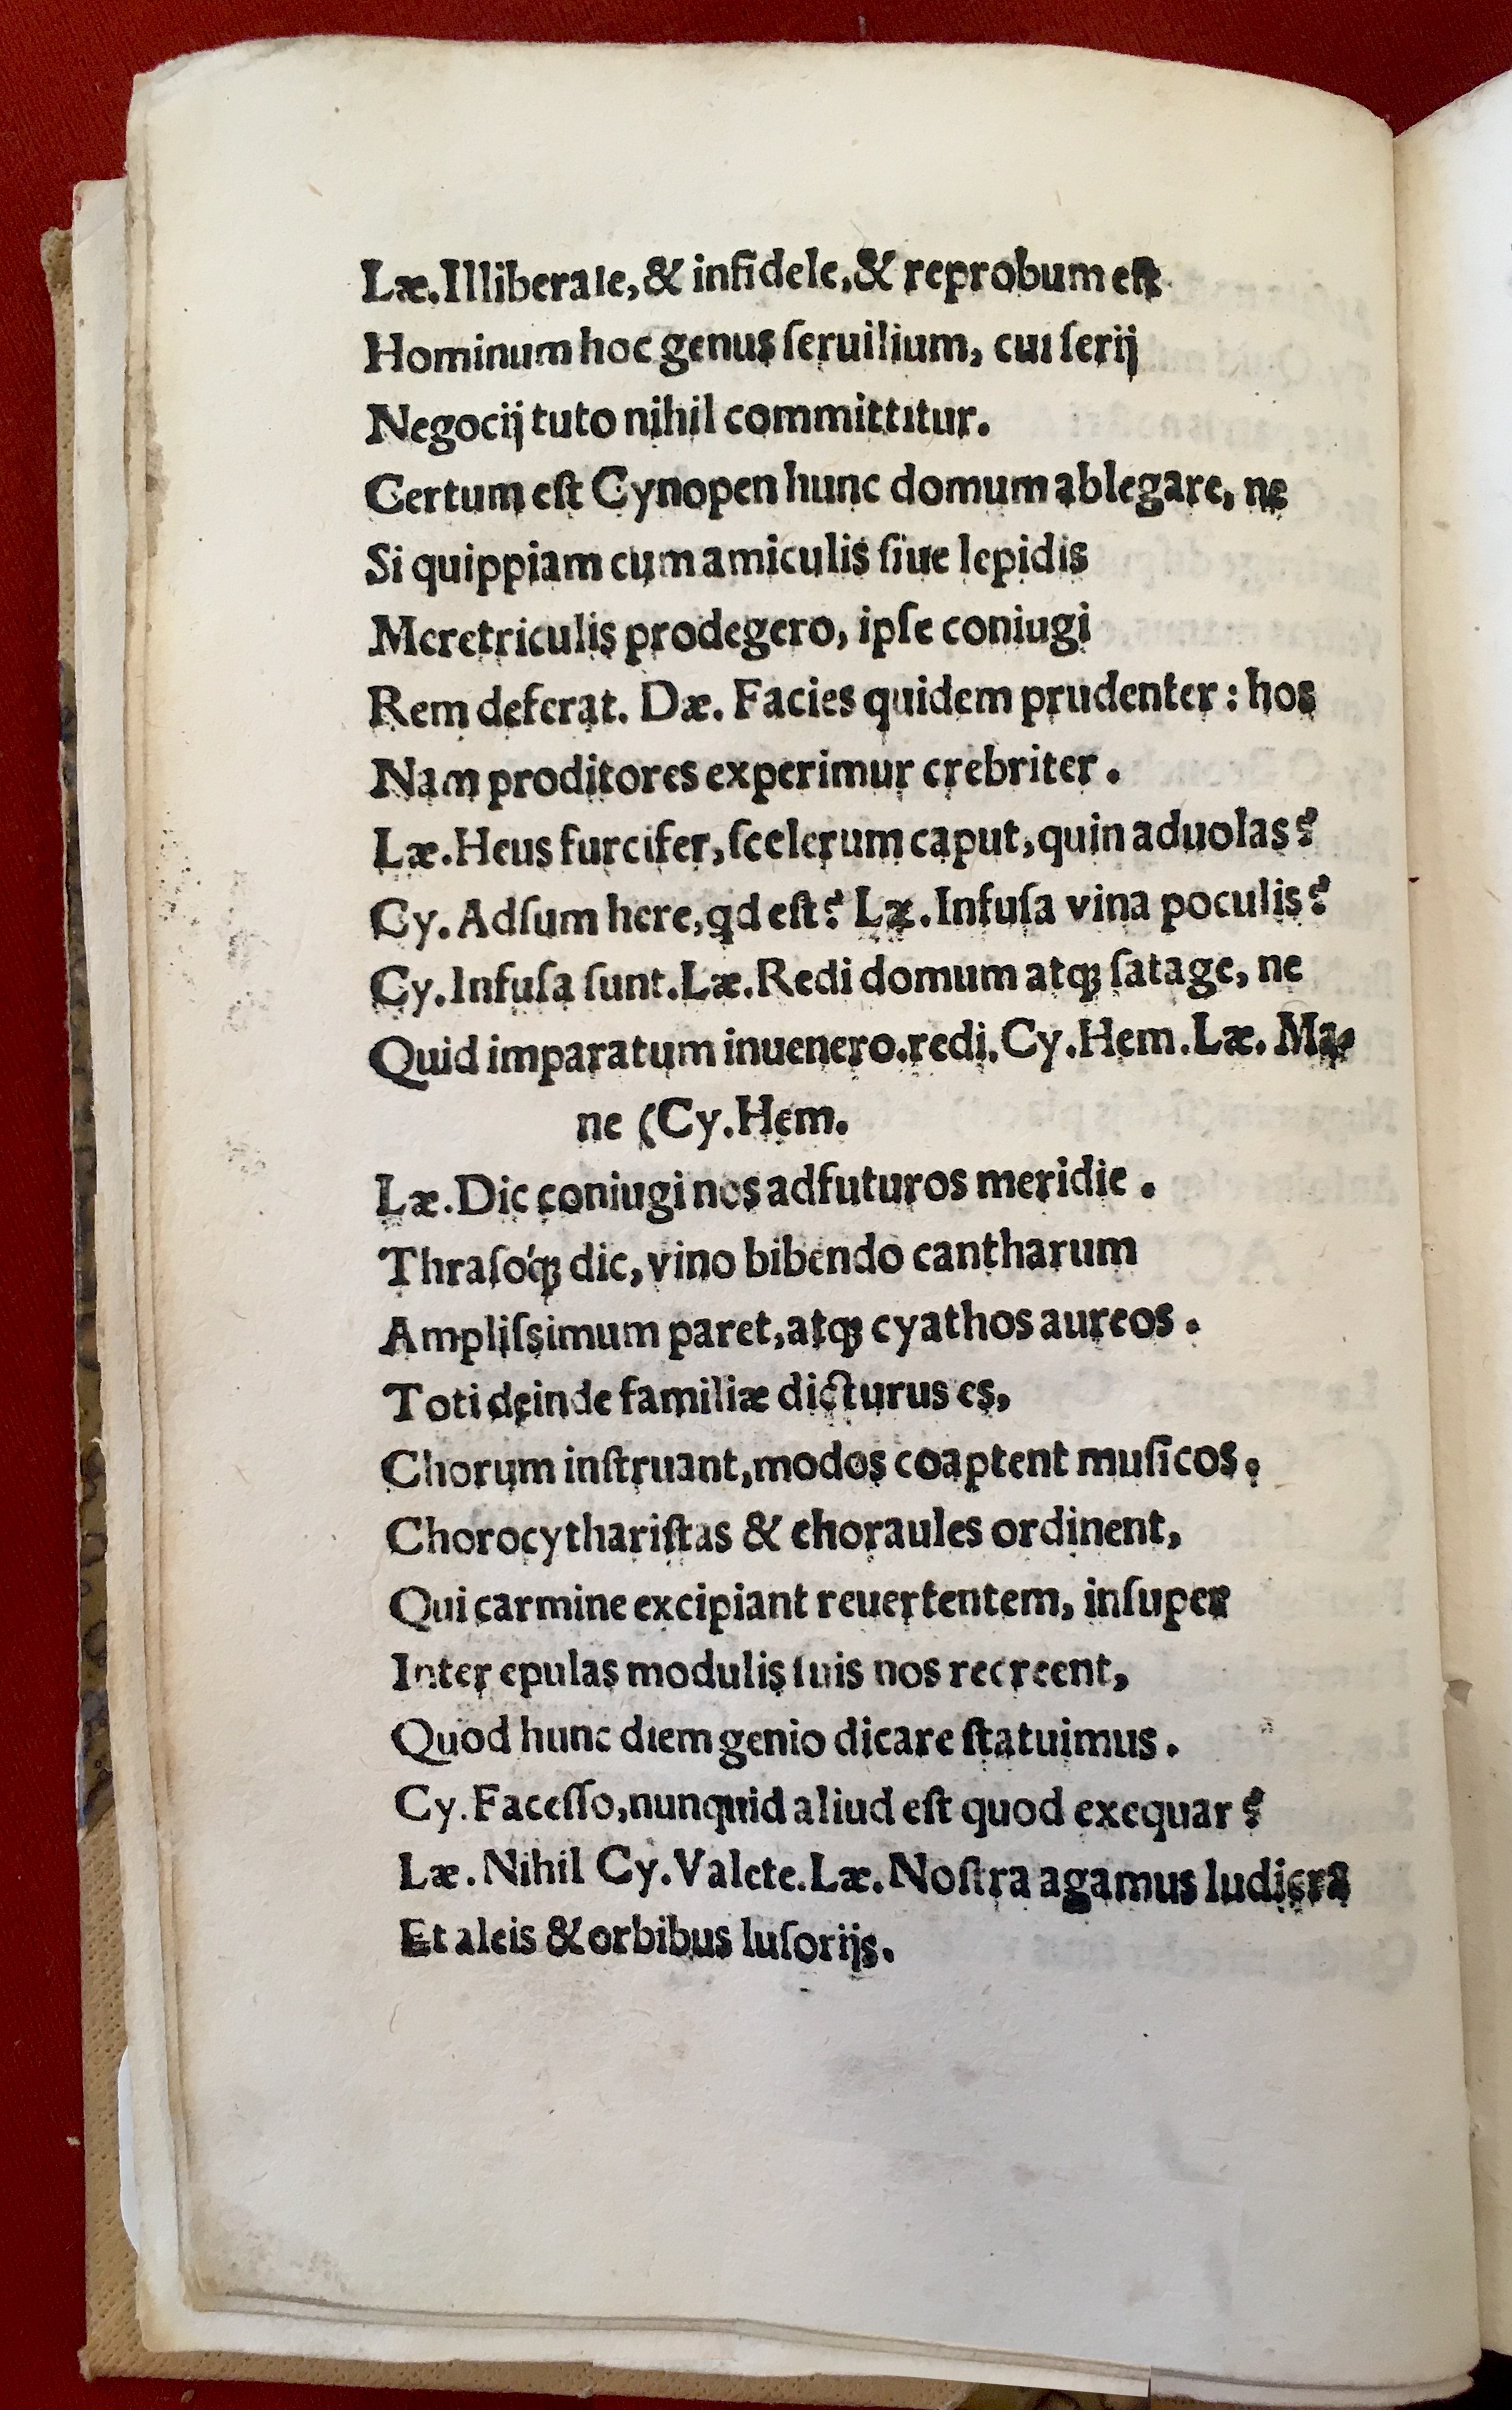 Læ.Illiberale,& infidele,& reprobum eſt
Hominum hoc genus ſeruilium, cui ſerij
Negocij tuto nihil committitur.
Certum eſt Cynopen hunc domum ablegare, ne
Si quippiam cum amiculis ſiue lepidis
Meretriculis prodegero, ipſe coniugi
Rem deferat. Dæ. Facies quidem prudenter: hos
Nam proditores experimur crebriter.
Læ.Heus furcifer,ſcelerum caput,quin aduolas?
Cy. Adſum here,qd eſt? Læ.Infuſa vina poculis?
Cy.Infuſa ſunt.Læ.Redi domum atqꝫ ſatage, ne
Quid imparatum inuenero.redi.Cy.Hem.Læ. Ma-
ne (Cy.Hem.
Læ.Dic coniugi nos adfuturos meridie.
Thraſoq́ꝫ dic,vino bibendo cantharum
Ampliſsimum paret,atqꝫ cyathos aureos.
Toti deinde familiæ dicturus es,
Chorum inſtruant,modos coaptent muſicos.
Chorocythariſtas & choraules ordinent,
Qui carmine excipiant reuertentem, inſuper
Inter epulas modulis ſuis nos recreent,
Quod hunc diem genio dicare ſtatuimus.
Cy.Faceſſo,nunquid aliud eſt quod exequar?
Læ.Nihil Cy.Valete.Læ.Noſtra agamus ludicra
Et aleis & orbibus luſorijs.